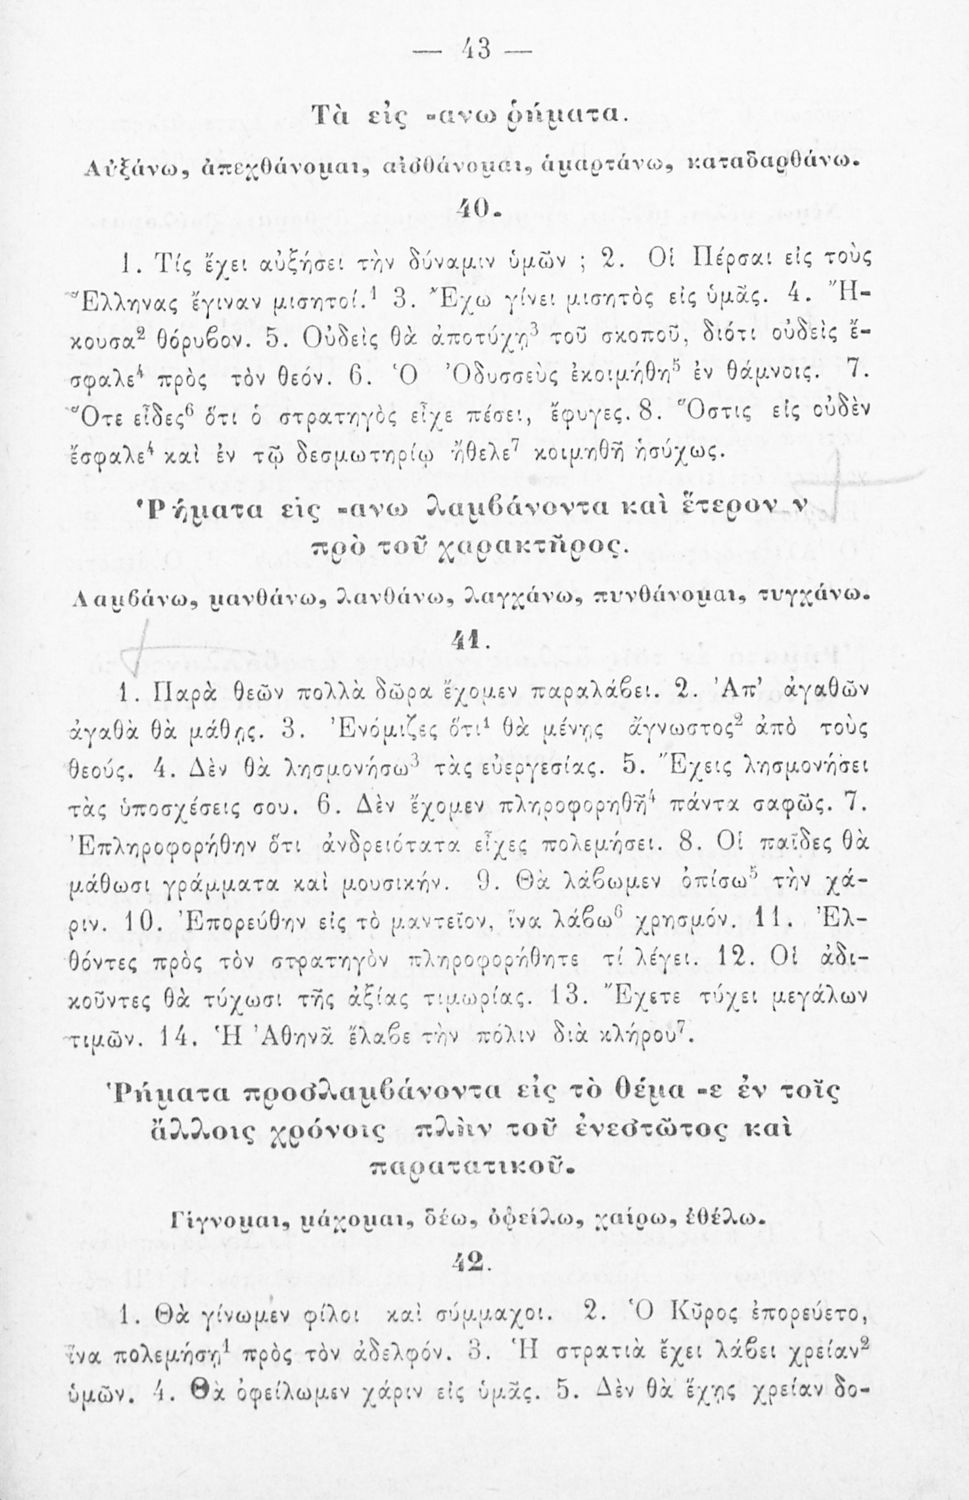 — 43 —
Τὰ εἰς -ανω ῥήματα.
Αὐξάνω, ἀπεχθάνομαι, αἰσθάνομαι, ἁμαρτάνω, καταδαρθάνω.
40.
1. Τίς ἔχει αὐξήσει τὴν δύναμιν ὑμῶν ; 2. Οἱ Πέρσαι εἰς τοὺς
Ἕλληνας ἔγιναν μισητοί.¹ 3. Ἔχω γίνει μισητὸς εἰς ὑμᾶς. 4. Ἤ-
κουσα² θόρυβον. 5. Οὐδεὶς θὰ ἀποτύχῃ³ τοῦ σκοποῦ, διότι οὐδεὶς ἔ-
σφαλε⁴ πρὸς τὸν θεόν. 6. Ὁ Ὀδυσσεὺς ἐκοιμήθη⁵ ἐν θάμνοις. 7.
Ὅτε εἶδες⁶ ὅτι ὁ στρατηγὸς εἶχε πέσει, ἔφυγες. 8. Ὅστις εἰς οὐδὲν
ἔσφαλε⁴ καὶ ἐν τῷ δεσμωτηρίῳ ἤθελε⁷ κοιμηθῆ ἡσύχως.
Ῥήματα εἰς -ανω λαμβάνοντα καὶ ἕτερον ν
πρὸ τοῦ χαρακτῆρος.
Λαμβάνω, μανθάνω, λανθάνω, λαγχάνω, πυνθάνομαι, τυγχάνω.
41.
1. Παρὰ θεῶν πολλὰ δῶρα ἔχομεν παραλάβει. 2. Ἀπ' ἀγαθῶν
ἀγαθὰ θὰ μάθῃς. 3. Ἐνόμιζες ὅτι¹ θὰ μένῃς ἄγνωστος² ἀπὸ τοὺς
θεούς. 4. Δὲν θὰ λησμονήσω³ τὰς εὐεργεσίας. 5. Ἔχεις λησμονήσει
τὰς ὑποσχέσεις σου. 6. Δὲν ἔχομεν πληροφορηθῆ⁴ πάντα σαφῶς. 7.
Ἐπληροφορήθην ὅτι ἀνδρειότατα εἶχες πολεμήσει. 8. Οἱ παῖδες θὰ
μάθωσι γράμματα καὶ μουσικήν. 9. Θὰ λάβωμεν ὀπίσω⁵ τὴν χά-
ριν. 10. Ἐπορεύθην εἰς τὸ μαντεῖον, ἵνα λάβω⁶ χρησμόν. 11. Ἐλ-
θόντες πρὸς τὸν στρατηγὸν πληροφορήθητε τί λέγει. 12. Οἱ ἀδι-
κοῦντες θὰ τύχωσι τῆς ἀξίας τιμωρίας. 13. Ἔχετε τύχει μεγάλων
τιμῶν. 14. Ἡ Ἀθηνᾶ ἔλαβε τὴν πόλιν διὰ κλήρου⁷.
Ῥήματα προσλαμβάνοντα εἰς τὸ θέμα -ε ἐν τοῖς
ἄλλοις χρόνοις πλὴν τοῦ ἐνεστῶτος καὶ
παρατατικοῦ.
Γίγνομαι, μάχομαι, δέω, ὀφείλω, χαίρω, ἐθέλω.
42.
1. Θὰ γίνωμεν φίλοι καὶ σύμμαχοι. 2. Ὁ Κῦρος ἐπορεύετο,
ἵνα πολεμήσῃ¹ πρὸς τὸν ἀδελφόν. 3. Ἡ στρατιὰ ἔχει λάβει χρείαν²
ὑμῶν. 4. Θὰ ὀφείλωμεν χάριν εἰς ὑμᾶς. 5. Δὲν θὰ ἔχῃς χρείαν δο-